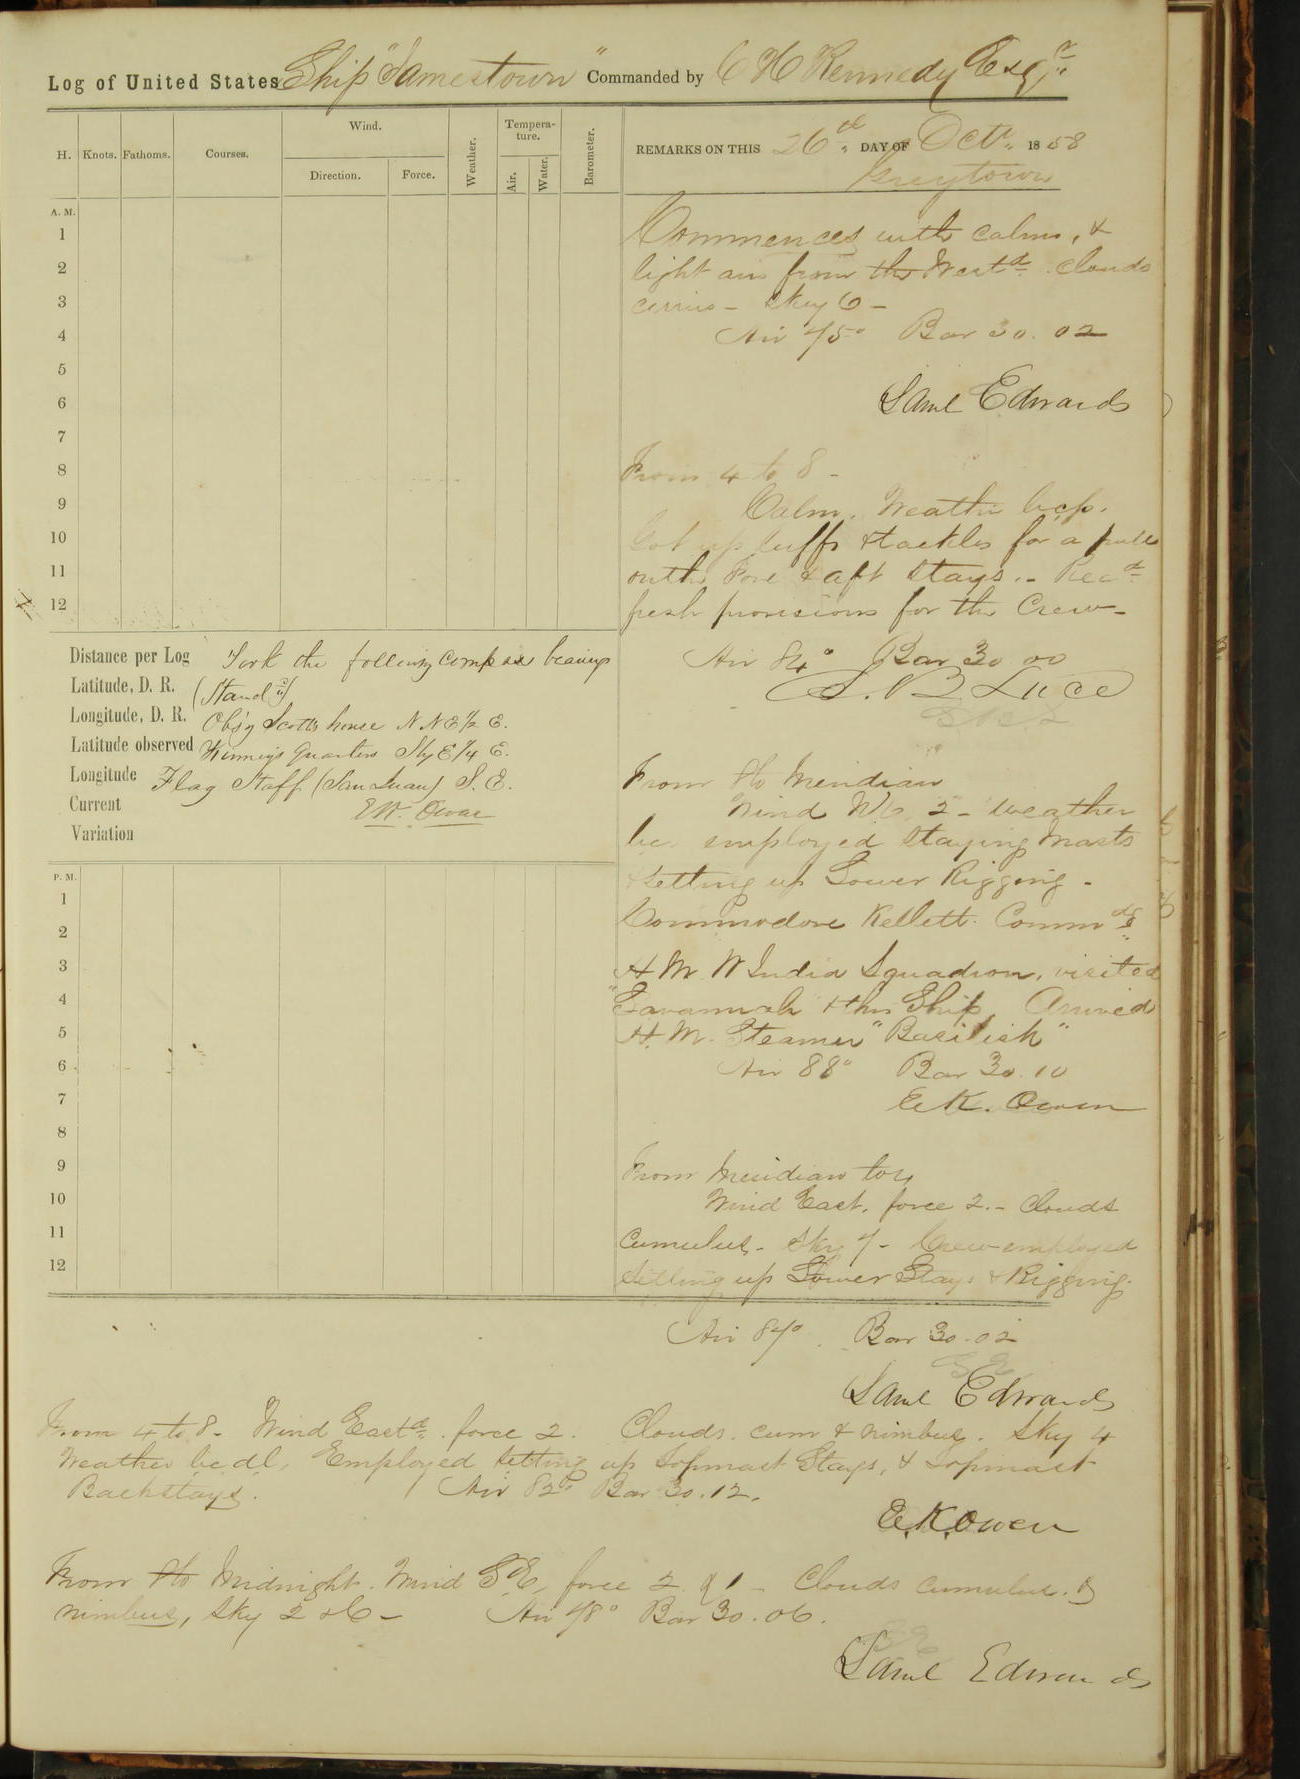 Log of United States Ship "Jamestown" Commanded by C H Kennedy Esqr.
H. Knots. Fathoms. Courses. Wind. Direction. Force. Weather. Tempera-ture. Air. Water. Barometer.
REMARKS ON THIS 26th DAY OF Octr. 1858
Greytown
A. M.
1
2
3
4
5
6
7
8
9
10
11
12
Commences with calms, &
light airs from the Westd. clouds
cirrus - Sky 6 -
Air 75° Bar 30.02
Saml Edwards
From 4 to 8 -
Calm. Weather bcp.
Got up luffs & tackles for a pull
on the Fore & aft Stays. - Recd
fresh provisions for the Crew -
Air 84° Bar 30.00
S. B Luce
From 8 to Meridian
Wind NE 2 - weather
bc. employed staying Masts
& setting up Lower Rigging -
Commodore Kellett. Commdg
H M W India Squadron, visited
"Savannah & this Ship. Arrived
H. M. Steamer "Basilisk"
Air 88° Bar 30.10
E K. Owen
From Meridian to 4
Wind East, force 2. - Clouds
Cumulus - Sky 7 - Crew employed
Setting up Lower Stays & Rigging.
Air 87° Bar 30.02
Saml Edwards
Distance per Log Took the following compass bearings
Latitude, D. R. (Stand.)
Longitude, D. R. Obsg Scott's house N N E ½ E.
Latitude observed Kinney's Quarters S by E ¼ E.
Longitude Flag Staff (San Juan) S. E.
Current E K. Owen
Variation
P. M.
1
2
3
4
5
6
7
8
9
10
11
12
From 4 to 8 - Wind Eastd. force 2. Clouds. cum & nimbus. Sky 4
Weather bcdl, Employed setting up Topmast Stays, & Topmast
Backstays. Air 82° Bar 30.12.
E. K. Owen
From 8 to Midnight. Wind SE, force 2 & 1 - Clouds cumulus. &
nimbus, Sky 2 & 6 - Air 78° Bar 30.06.
Saml Edwards